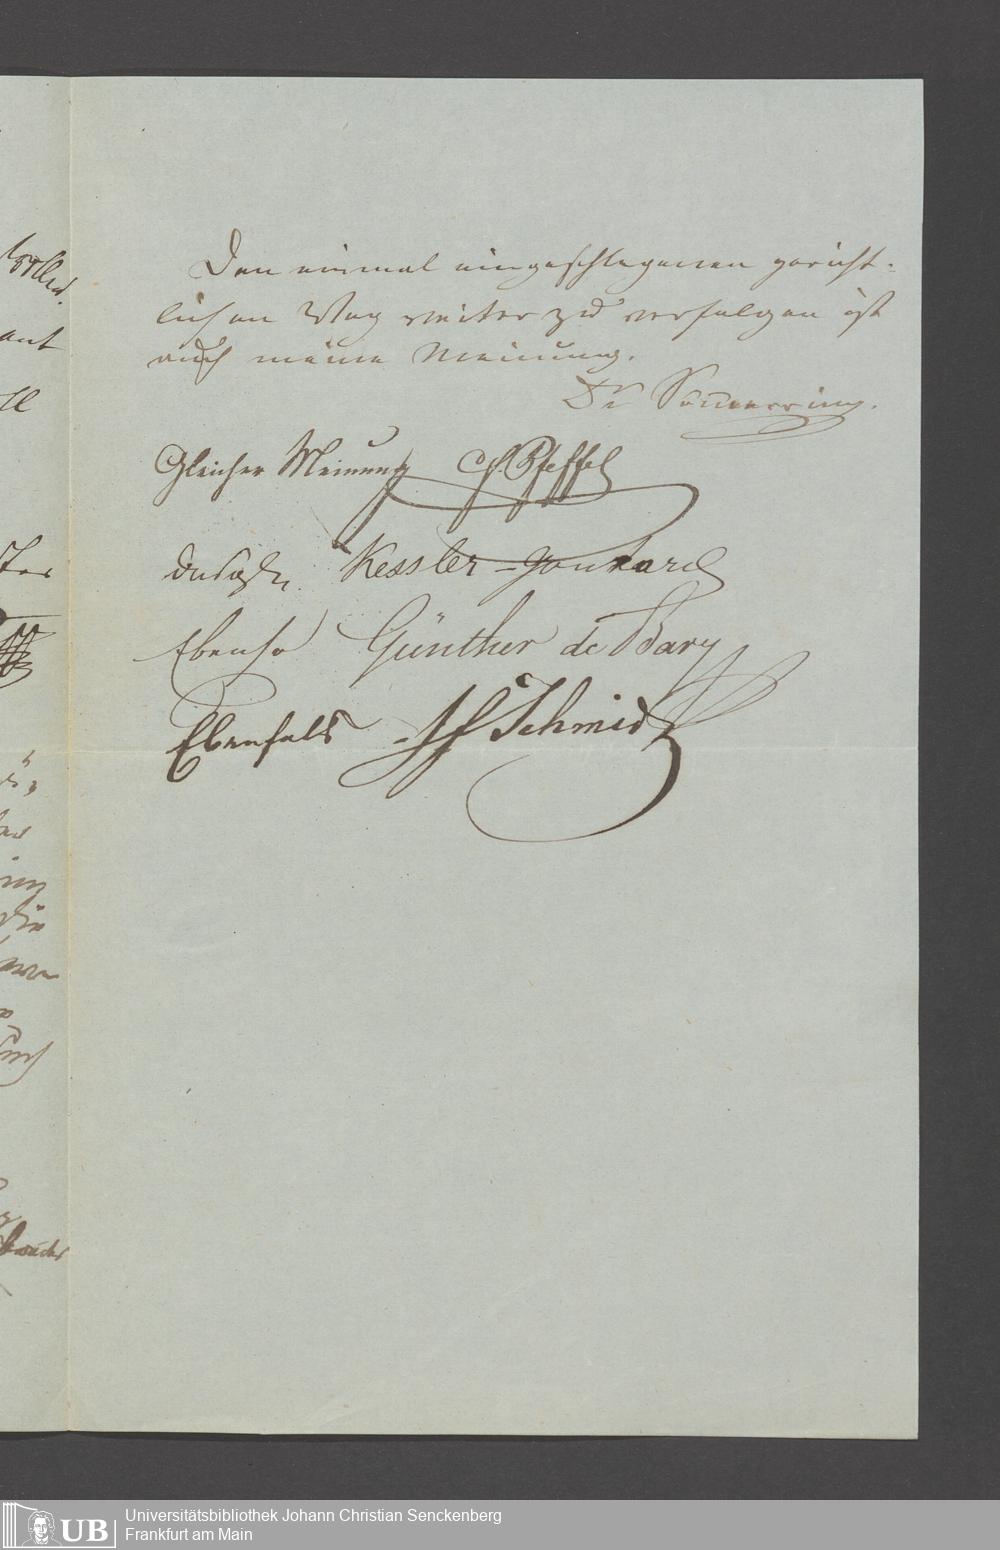 Den einmal eingeschlagenen gericht-
lichen Weg weiter zu verfolgen ist
auch meine Meinung.
Dr Soemmerring.
Gleicher Meinung Pfeffel
Kessler-Gontard
Ebenso Günther de Bary
Ebenfals Schmidt
Universitätsbibliothek Johann Christian Senckenberg
Frankfurt am Main
UB